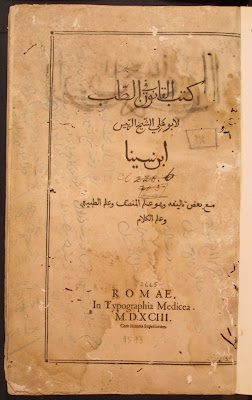 كتب القانون في الطب
لابو علي الشيخ الرئيس
ابن سينا
مع بعض تاليفه وهو علم المنطق وعلم الطبيعي
وعلم الكلام
ROMAE.
In Typographia Medicea.
M.D.XCIII.
Cum licentia Superiorum.
1593